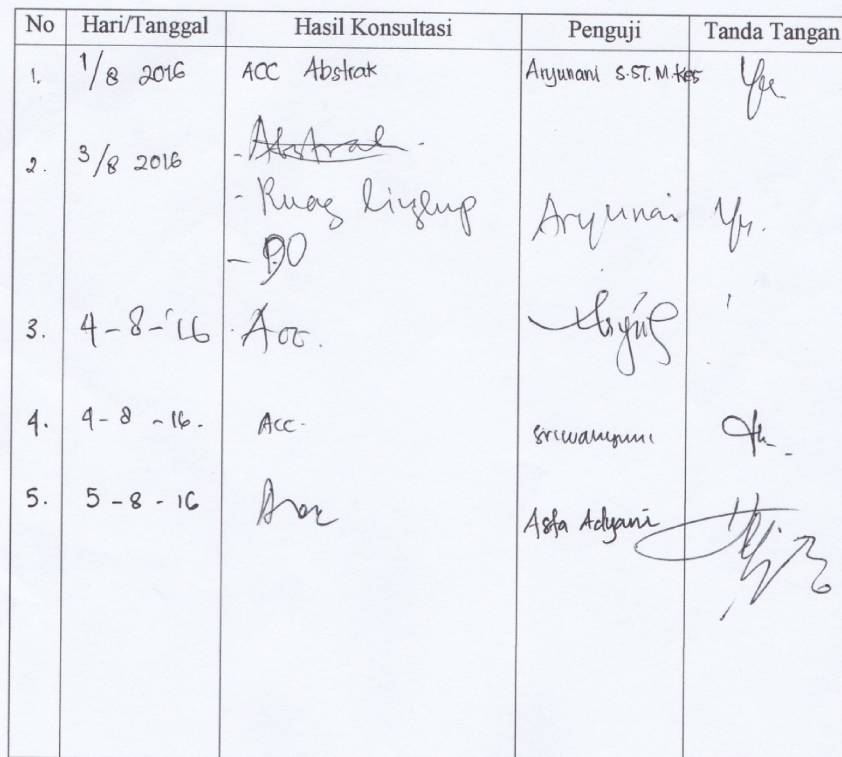 No Hari/Tanggal Hasil Konsultasi Penguji Tanda Tangan
1. 1/8 2016 ACC Abstrak Aryunani S.ST. M.Kes
2. 3/8 2016 - Abstrak -
- Ruag Lingkup Aryunai
- DO
3. 4-8-'16 Acc.
4. 4-8-16. Acc. Sriwahyuni
5. 5-8-16 Acc Asfa Adyani